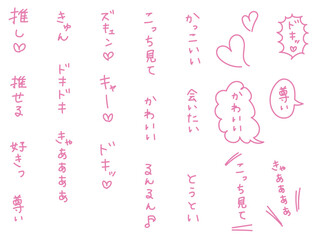 ドキッ♡
尊い
きゃああああ
かわいい
こっち見て
かっこいい
会いたい
とうとい
こっち見て
かわいい
るんるん♪
ズキュン♡
キャー♡
ドキッ♡
きゅん
ドキドキ
きゃああああ
推し♡
推せる
好きっ
尊い